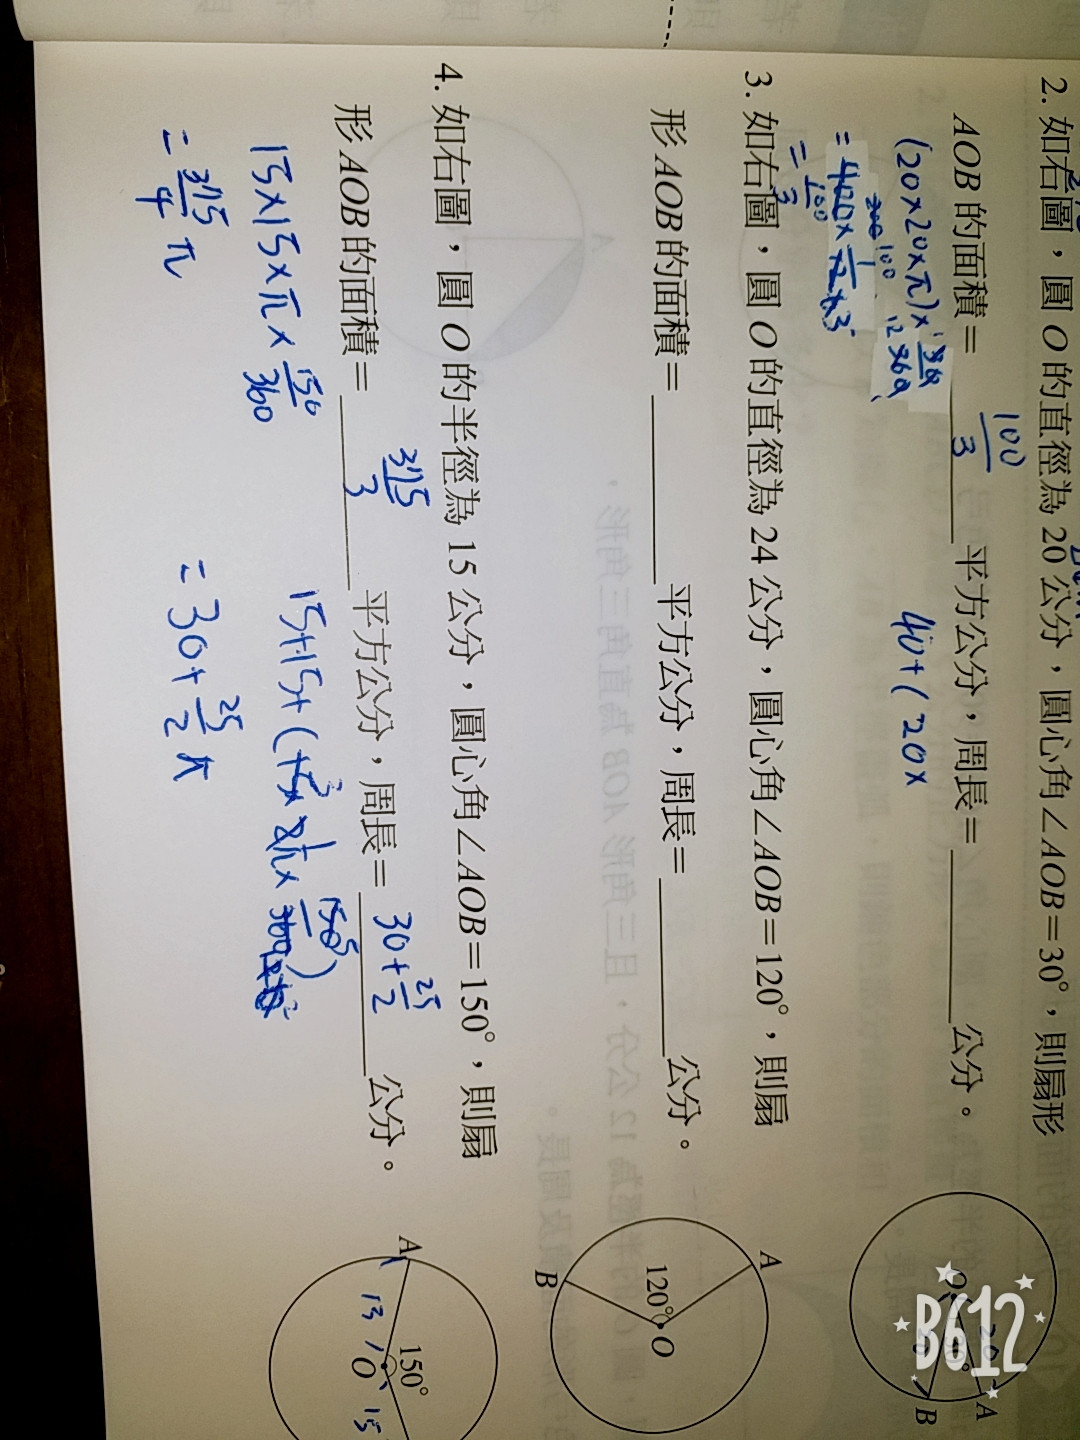 2. 如右圖，圓 O 的直徑為 20 公分，圓心角∠AOB=30°，則扇形
AOB 的面積= 100/3 平方公分，周長= 公分。
(20×20×π)×
40+(20×
= 100/3
3. 如右圖，圓 O 的直徑為 24 公分，圓心角∠AOB=120°，則扇
形 AOB 的面積= 平方公分，周長= 公分。
4. 如右圖，圓 O 的半徑為 15 公分，圓心角∠AOB=150°，則扇
形 AOB 的面積= 375/3 平方公分，周長= 30+25/2 公分。
15×15×π×150/360
15+15+(
= 375/4 π
= 30+25/2 π
O
A
B
B612
A
120°
O
B
A
150°
O
13
15